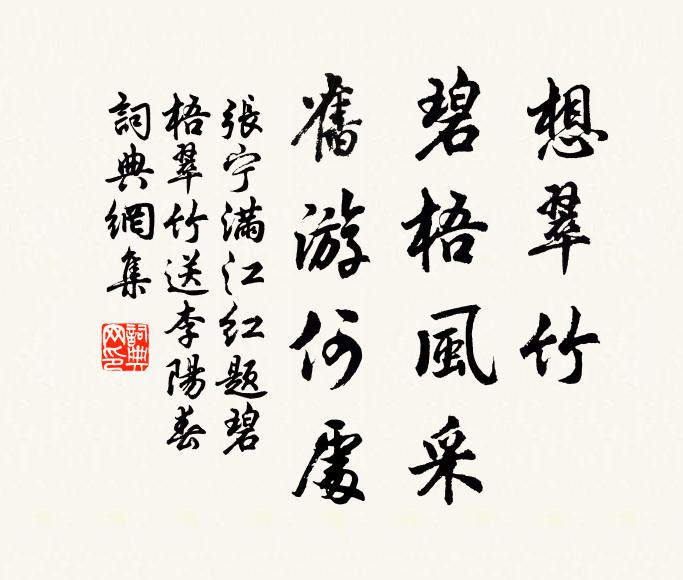 想翠竹
碧梧風采
舊游何處
張宁滿江红題碧
梧翠竹送李陽春
詞典網集
詞典网印